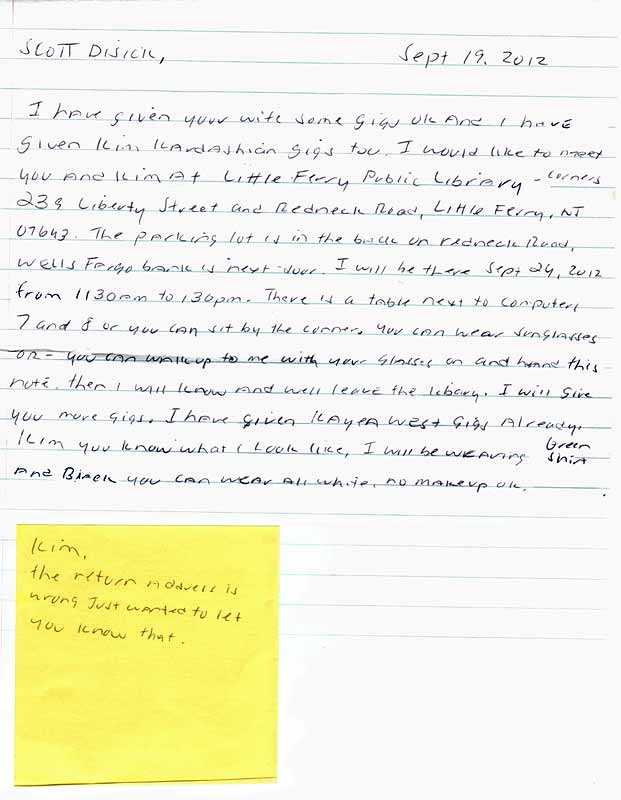 SCOTT DISICK, Sept 19. 2012
I have given your wife some gigs ok And I have
given Kim Kardashian gigs too. I would like to meet
you And Kim At Little Ferry Public Library - corners
239 Liberty Street and Redneck Road, Little Ferry, NJ
07643. The parking lot is in the back on redneck Road,
Wells Fargo bank is next door. I will be there Sept 24, 2012
from 1130am to 130pm. There is a table next to computers
7 and 8 or you can sit by the corner. you can wear sunglasses
or - you can walk up to me with your glasses on and hand this
note. then I will know and we'll leave the libary. I will give
you more gigs. I have given KAyea West gigs Already.
Kim you know what I look like, I will be wearing Green Shirt
And Black you can wear All white, no makeup ok.
Kim,
the return Address is
wrong Just wanted to let
you know that.